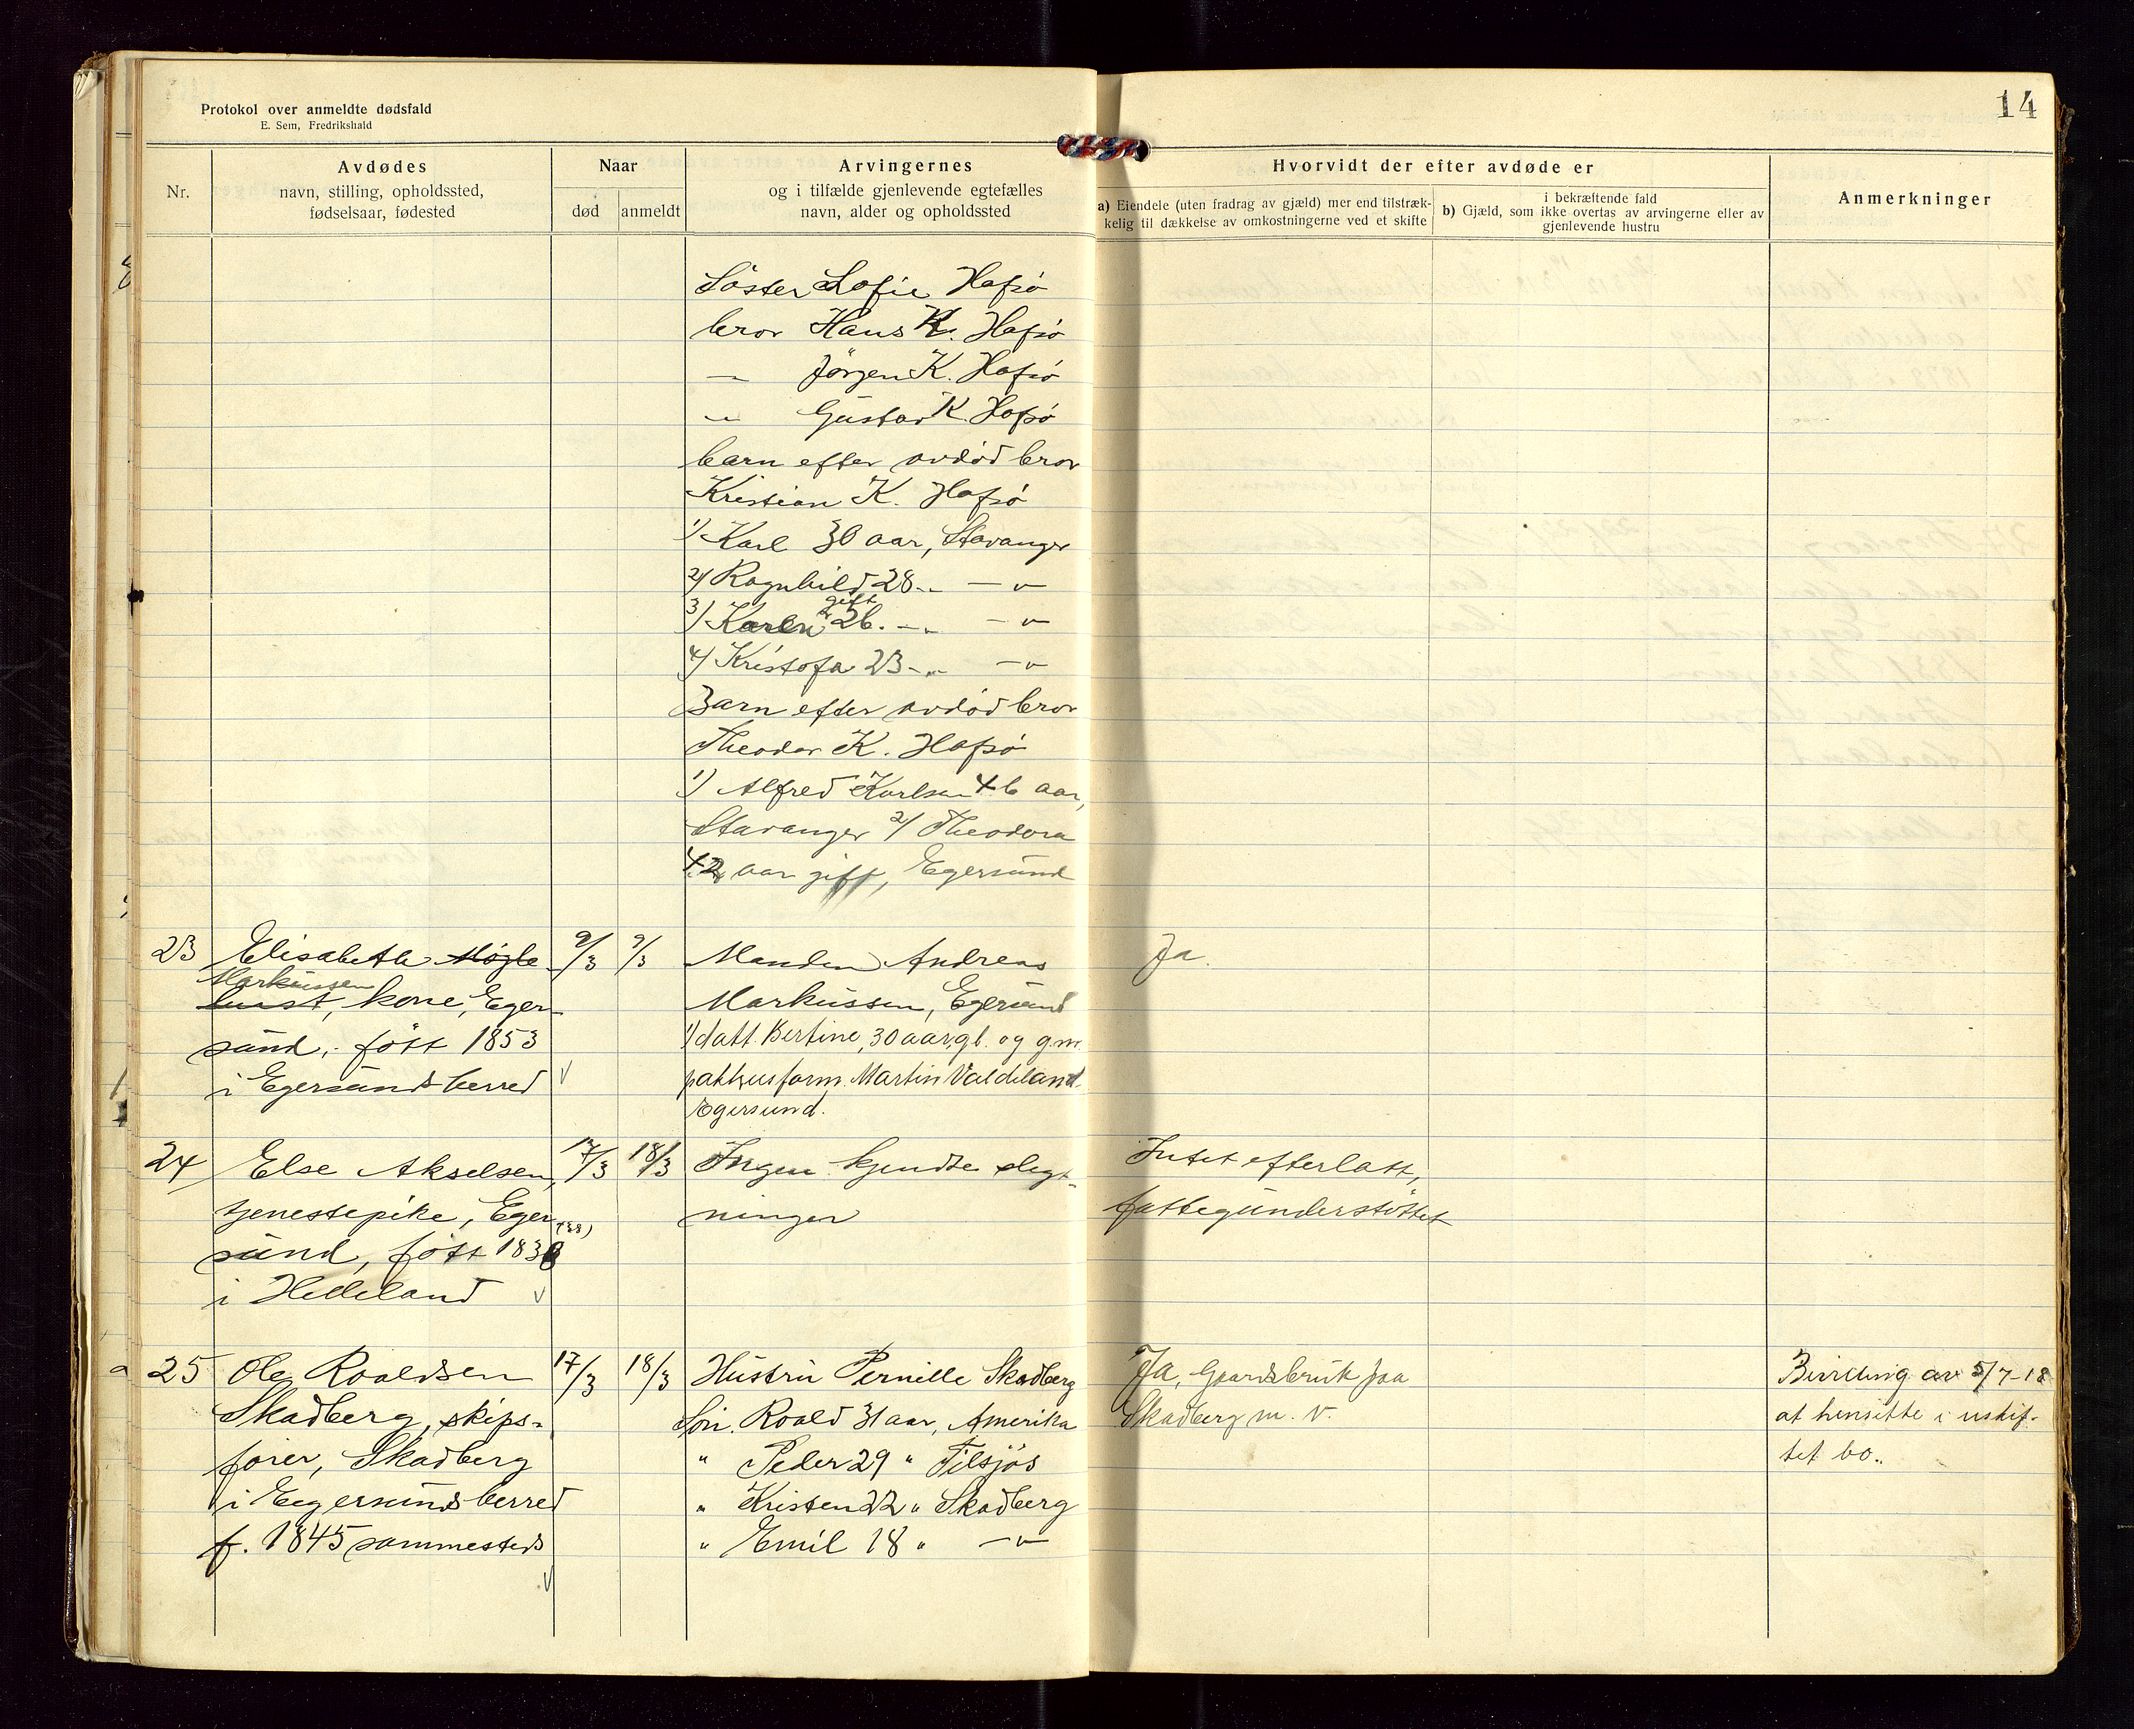 Protokol over anmeldte dødsfald
E. Sem, Fredrikshald
14
Nr.
Avdødes
navn, stilling, opholdssted,
fødselsaar, fødested
Naar
død
anmeldt
Arvingernes
og i tilfælde gjenlevende egtefælles
navn, alder og opholdssted
Hvorvidt der efter avdøde er
a) Eiendele (uten fradrag av gjæld) mer end tilstræk-
kelig til dækkelse av omkostningerne ved et skifte
i bekræftende fald
b) Gjæld, som ikke overtas av arvingerne eller av
gjenlevende hustru
Anmerkninger
Söster Sofie Hafsö
bror Hans K. Hafsö
—„— Jørgen K. Hafsö
—„— Gustav K. Hafsö
barn efter avdöd bror
Kristian K. Hafsö
1) Karl 30 aar, Stavanger
2) Ragnhild 28 —„— —„—
gift
3) Karen 26. —„— —„—
4) Kristofa 23 —„— —„—
Barn efter avdöd bror
Theodor K. Hafsö
1) Alfred Karlsen 46 aar,
Stavanger 2) Theodora
42 aar gift, Egersund
23 Elisabeth Møgle
Markussen
hust, kone, Eger-
sund, født 1853
i Egersunds herred
9/3 9/3
Manden Andreas
Markussen, Egersund
1) datt. Bertine, 30 aar, gl. og g.m.
pakhusform. Martin Valdeland
Egersund.
Ja.
24 Else Akselsen,
tjenestepike, Eger-
(38)
sund, født 1838
i Helleland
17/3 18/3
Ingen kjendte slegt-
ninger
Intet efterlatt,
fattigunderstöttet
25 Ole Roaldsen
Skadberg, skips-
förer, Skadberg
i Egersunds herred
f. 1845 sammesteds
17/3 18/3
Hustru Pernille Skadberg
Sön. Roald 31 aar, Amerika
" Peder 29 " Tilsjös
" Kristen 22 " Skadberg
" Emil 18 " —„—
Ja, Gaardsbruk paa
Skadberg m. v.
Bevilling av 5/7-18
at hensitte i uskif-
tet bo..